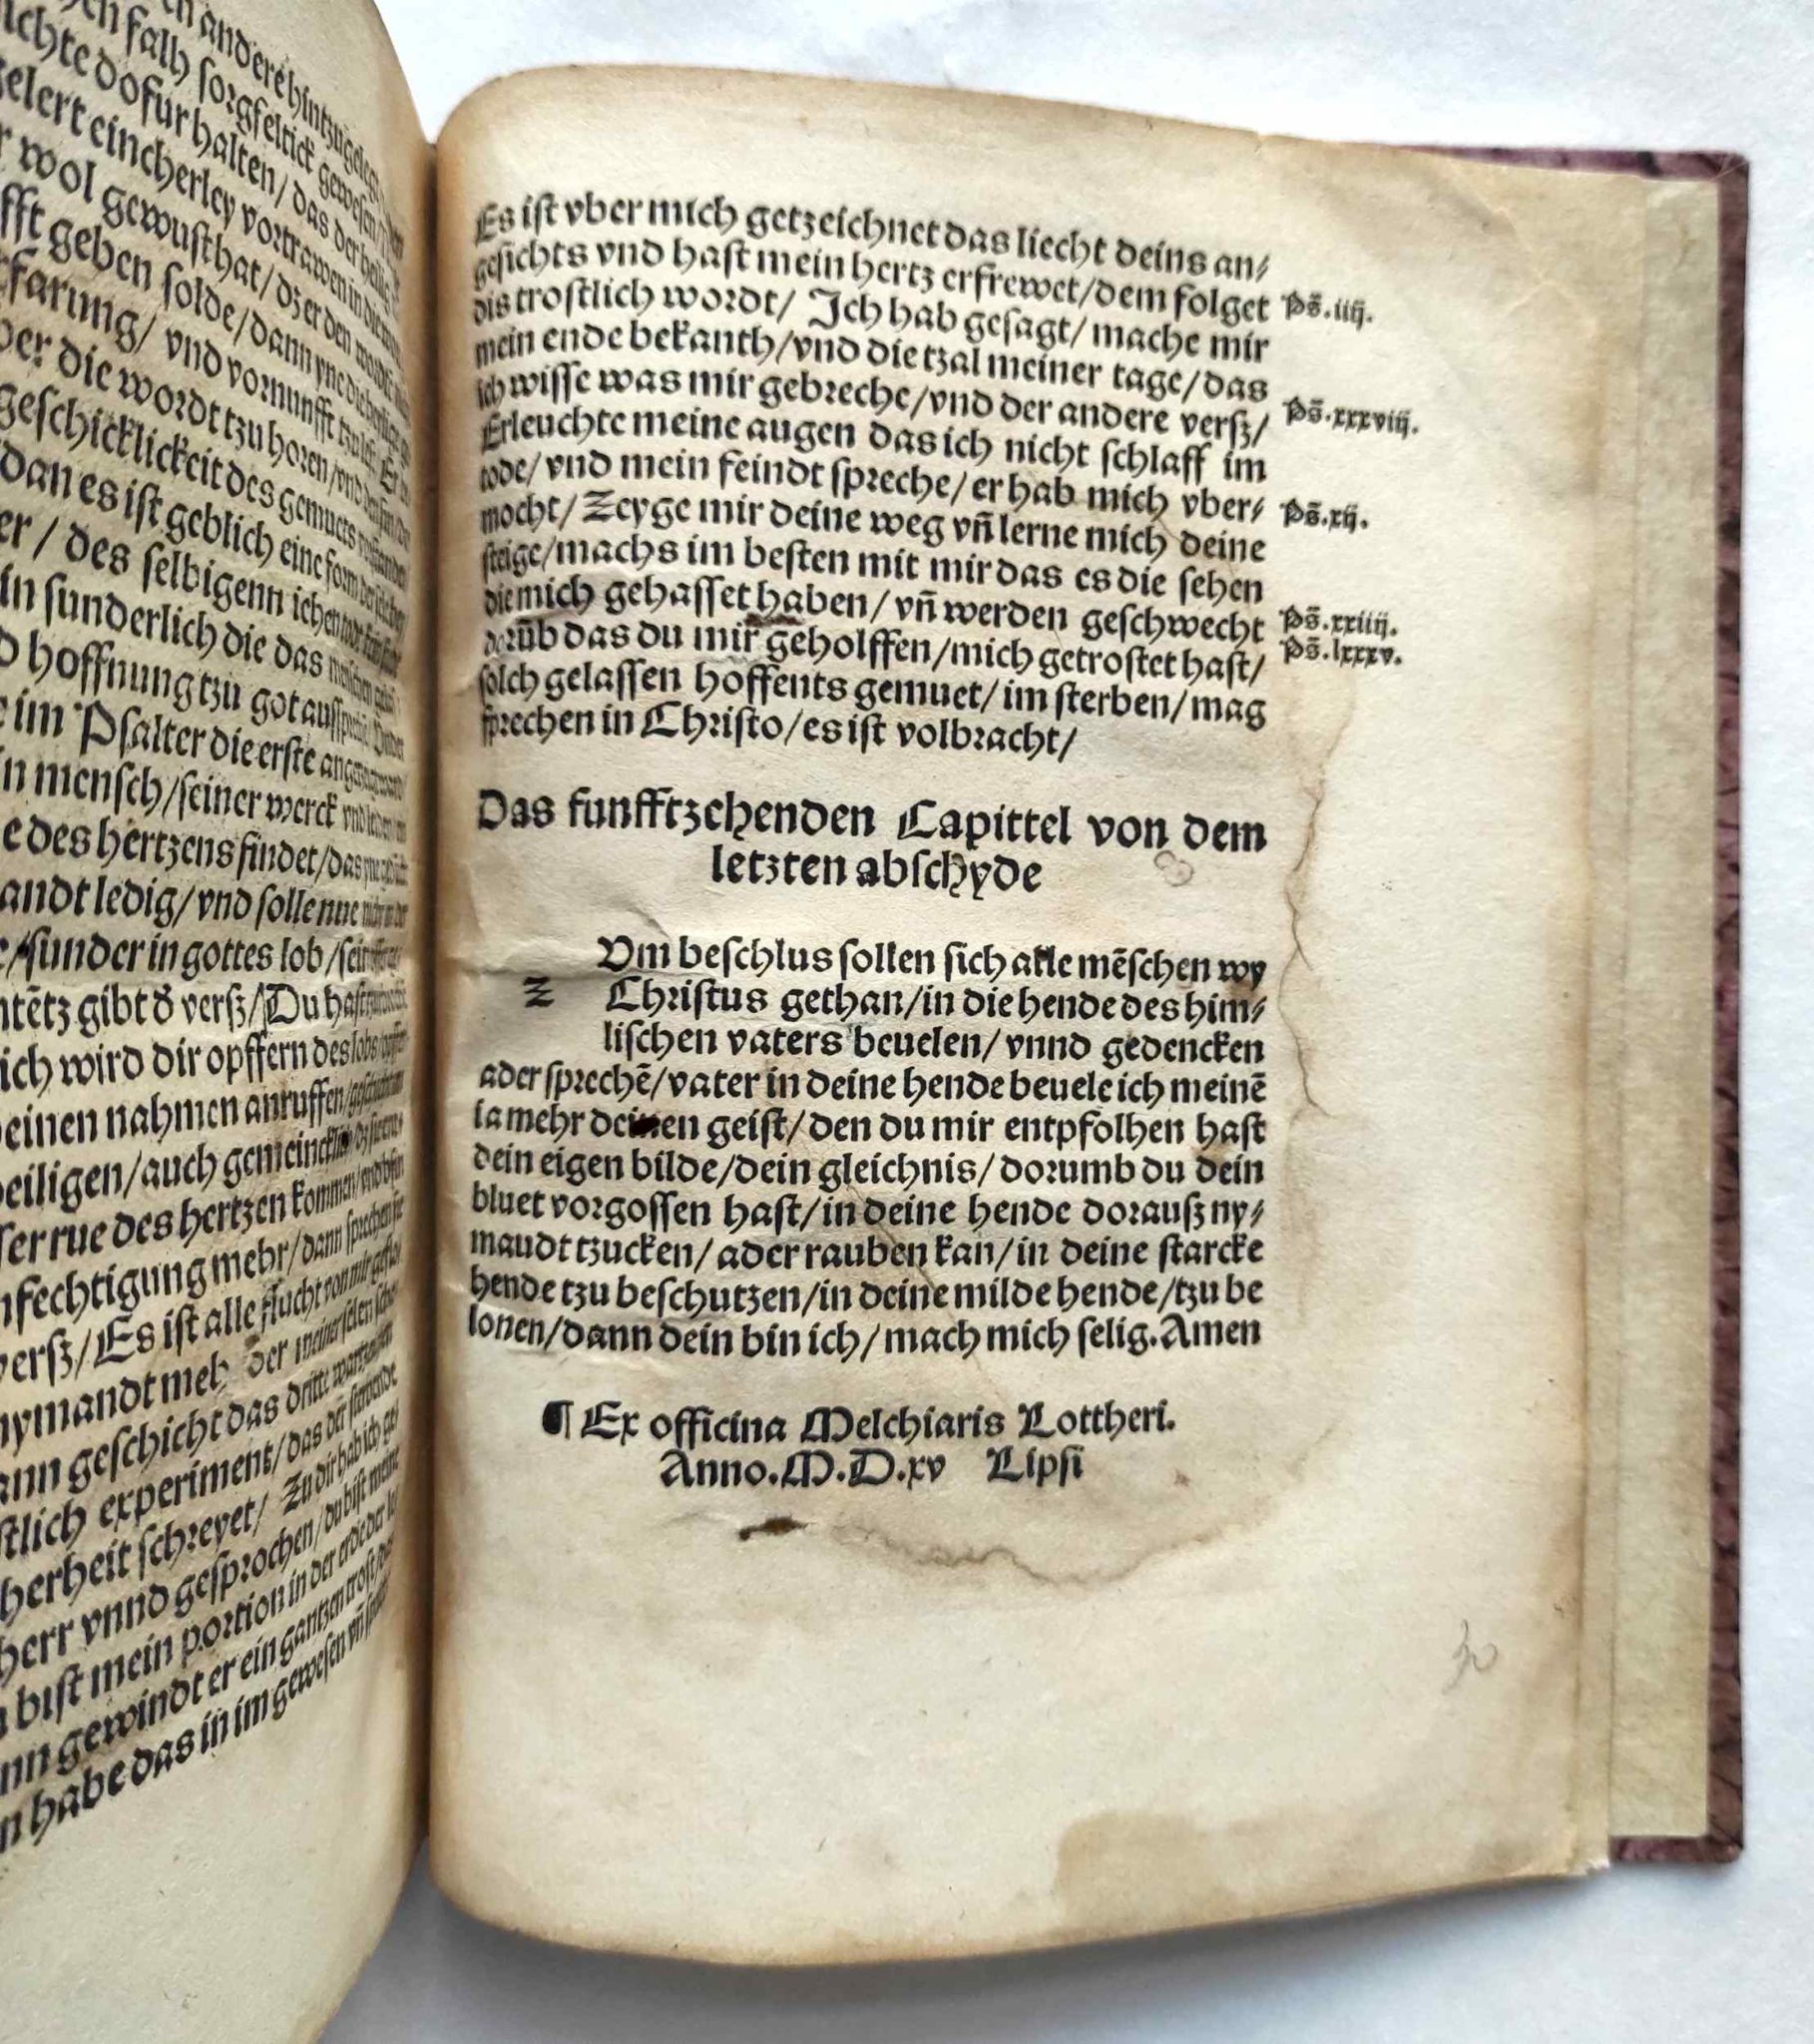 en andere hintzugelegt
en falh sorgfeltick gewesen
ichte dofur halten/ das der heilig
gelert eincherley vortrawen in die
wol gewust hat/ dz er den
fft geben solde/ dann yne die heilig
farung/ vnd vornunfft
er die wordt tzu horen/ vnd
geschicklickeit des gemuets
dan es ist geblich eine form der
er/ des selbigenn ichen
in sunderlich die das menschen
d hoffnung tzu got
im Psalter die erste
n mensch/ seiner werck vnd
e des hertzens findet/ das
andt ledig/ vnd solle nue
e/ sunder in gottes lob/
ntētz gibt ď verſz/ Du hast
ich wird dir opffern des lobs
einen nahmen anruffen/
eiligen/ auch gemeincklich
ser rue des hertzen kommen/
nfechtigung mehr/ dann sprechen
verſz/ Es ist alle flucht von mir
nymandt meh der meiner selen
ann geschicht das dritte
stlich experiment/ das der sterbende
herheit schreyet/ Zu dir hab ich
herr vnnd gesprochen/ du bist meine
bist mein portion in der erdie der
nn gewindt er ein gantzen trost
n habe das in im gewesen vñ
Es iſt vber mich getzeichnet das liecht deins an⸗
gesichts vnd haſt mein hertz erfrewet/ dem folget
Ps̄. iiij.
dis troſtlich wordt/ Ich hab geſagt/ mache mir
mein ende bekanth/ vnd die tzal meiner tage/ das
ich wiſſe was mir gebreche/ vnd der andere verſz/
Ps̄. xxxviij.
Erleuchte meine augen das ich nicht ſchlaff im
tode/ vnd mein feindt ſpreche/ er hab mich vber⸗
Ps̄. xij.
mocht/ Zeyge mir deine weg vñ lerne mich deine
ſteige/ machs im beſten mit mir das es die ſehen
die mich gehaſſet haben/ vñ werden geſchwecht
Ps̄. xxiiij.
dorūb das du mir geholffen/ mich getroſtet haſt/
Ps̄. lxxxv.
ſolch gelaſſen hoffents gemuet/ im ſterben/ mag
ſprechen in Chriſto/ es iſt volbracht/
Das funfftzehenden Capittel von dem
letzten abſchyde
z Vm beſchlus ſollen ſich alle mēſchen wy
Chriſtus gethan/ in die hende des him⸗
liſchen vaters beuelen/ vnnd gedencken
ader ſprechē/ vater in deine hende beuele ich meinē
ia mehr deinen geiſt/ den du mir entpfolhen haſt
dein eigen bilde/ dein gleichnis/ dorumb du dein
bluet vorgoſſen haſt/ in deine hende dorauſz ny⸗
maudt tzucken/ ader rauben kan/ in deine ſtarcke
hende tzu beſchutzen/ in deine milde hende/ tzu be
lonen/ dann dein bin ich/ mach mich ſelig. Amen
¶ Ex officina Melchiaris Lottheri.
Anno. M. D. xv Lipſi